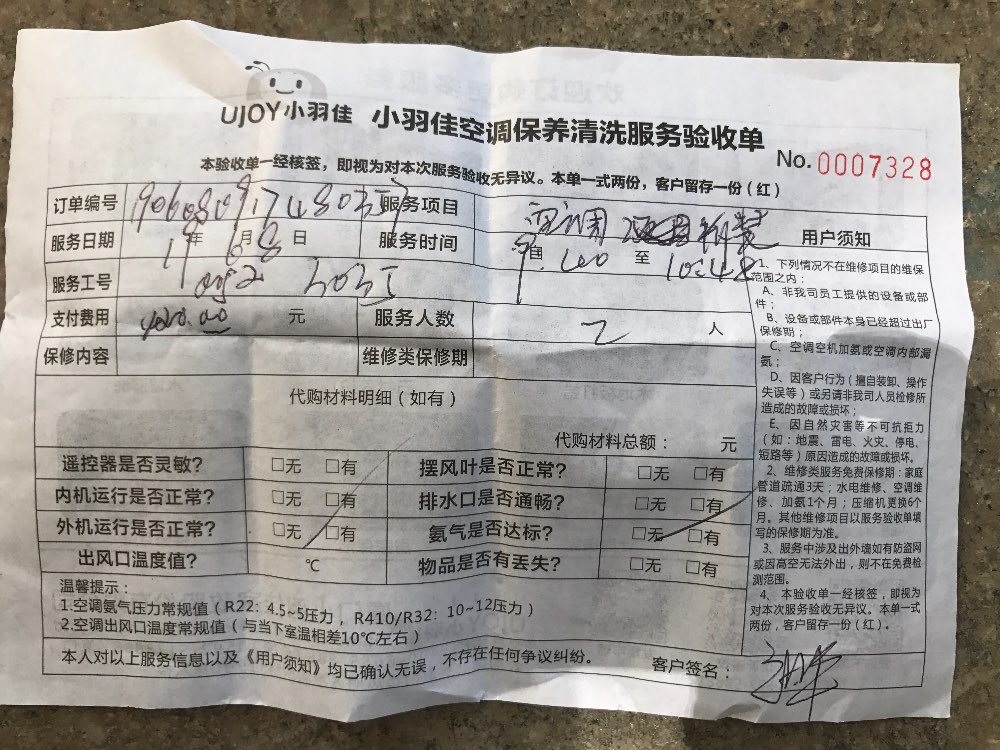 UJOY小羽佳 小羽佳空调保养清洗服务验收单
No.0007328
本验收单一经核签，即视为对本次服务验收无异议。本单一式两份，客户留存一份（红）
订单编号 服务项目 空调 拆装
服务日期 19年6月8日 服务时间 9:40至10:48
服务工号
支付费用 元 服务人数 2人
保修内容 维修类保修期
代购材料明细（如有）
代购材料总额： 元
遥控器是否灵敏？ □无 □有 摆风叶是否正常？ □无 □有
内机运行是否正常？ □无 □有 排水口是否通畅？ □无 □有
外机运行是否正常？ □无 □有 氨气是否达标？ □无 □有
出风口温度值？ ℃ 物品是否有丢失？ □无 □有
温馨提示：
1.空调氨气压力常规值（R22：4.5~5压力，R410/R32：10~12压力）
2.空调出风口温度常规值（与当下室温相差10℃左右）
本人对以上服务信息以及《用户须知》均已确认无误，不存在任何争议纠纷。 客户签名：
用户须知
1、下列情况不在维修项目的维保
范围之内：
A、非我司员工提供的设备或部
件；
B、设备或部件本身已经超过出厂
保修期；
C、空调空机加氨或空调内部漏
氨；
D、因客户行为（擅自装卸、操作
失误等）或另请非我司人员检修所
造成的故障或损坏；
E、因自然灾害等不可抗拒力
（如：地震、雷电、火灾、停电、
短路等）原因造成的故障或损坏。
2、维修类服务免费保修期：家庭
管道疏通3天；水电维修、空调维
修、加氨1个月；压缩机更换6个
月。其他维修项目以服务验收单填
写的保修期为准。
3、服务中涉及出外墙如有防盗网
或因高空无法外出，则不在免费检
测范围。
4、本验收单一经核签，即视为
对本次服务验收无异议。本单一式
两份，客户留存一份（红）。